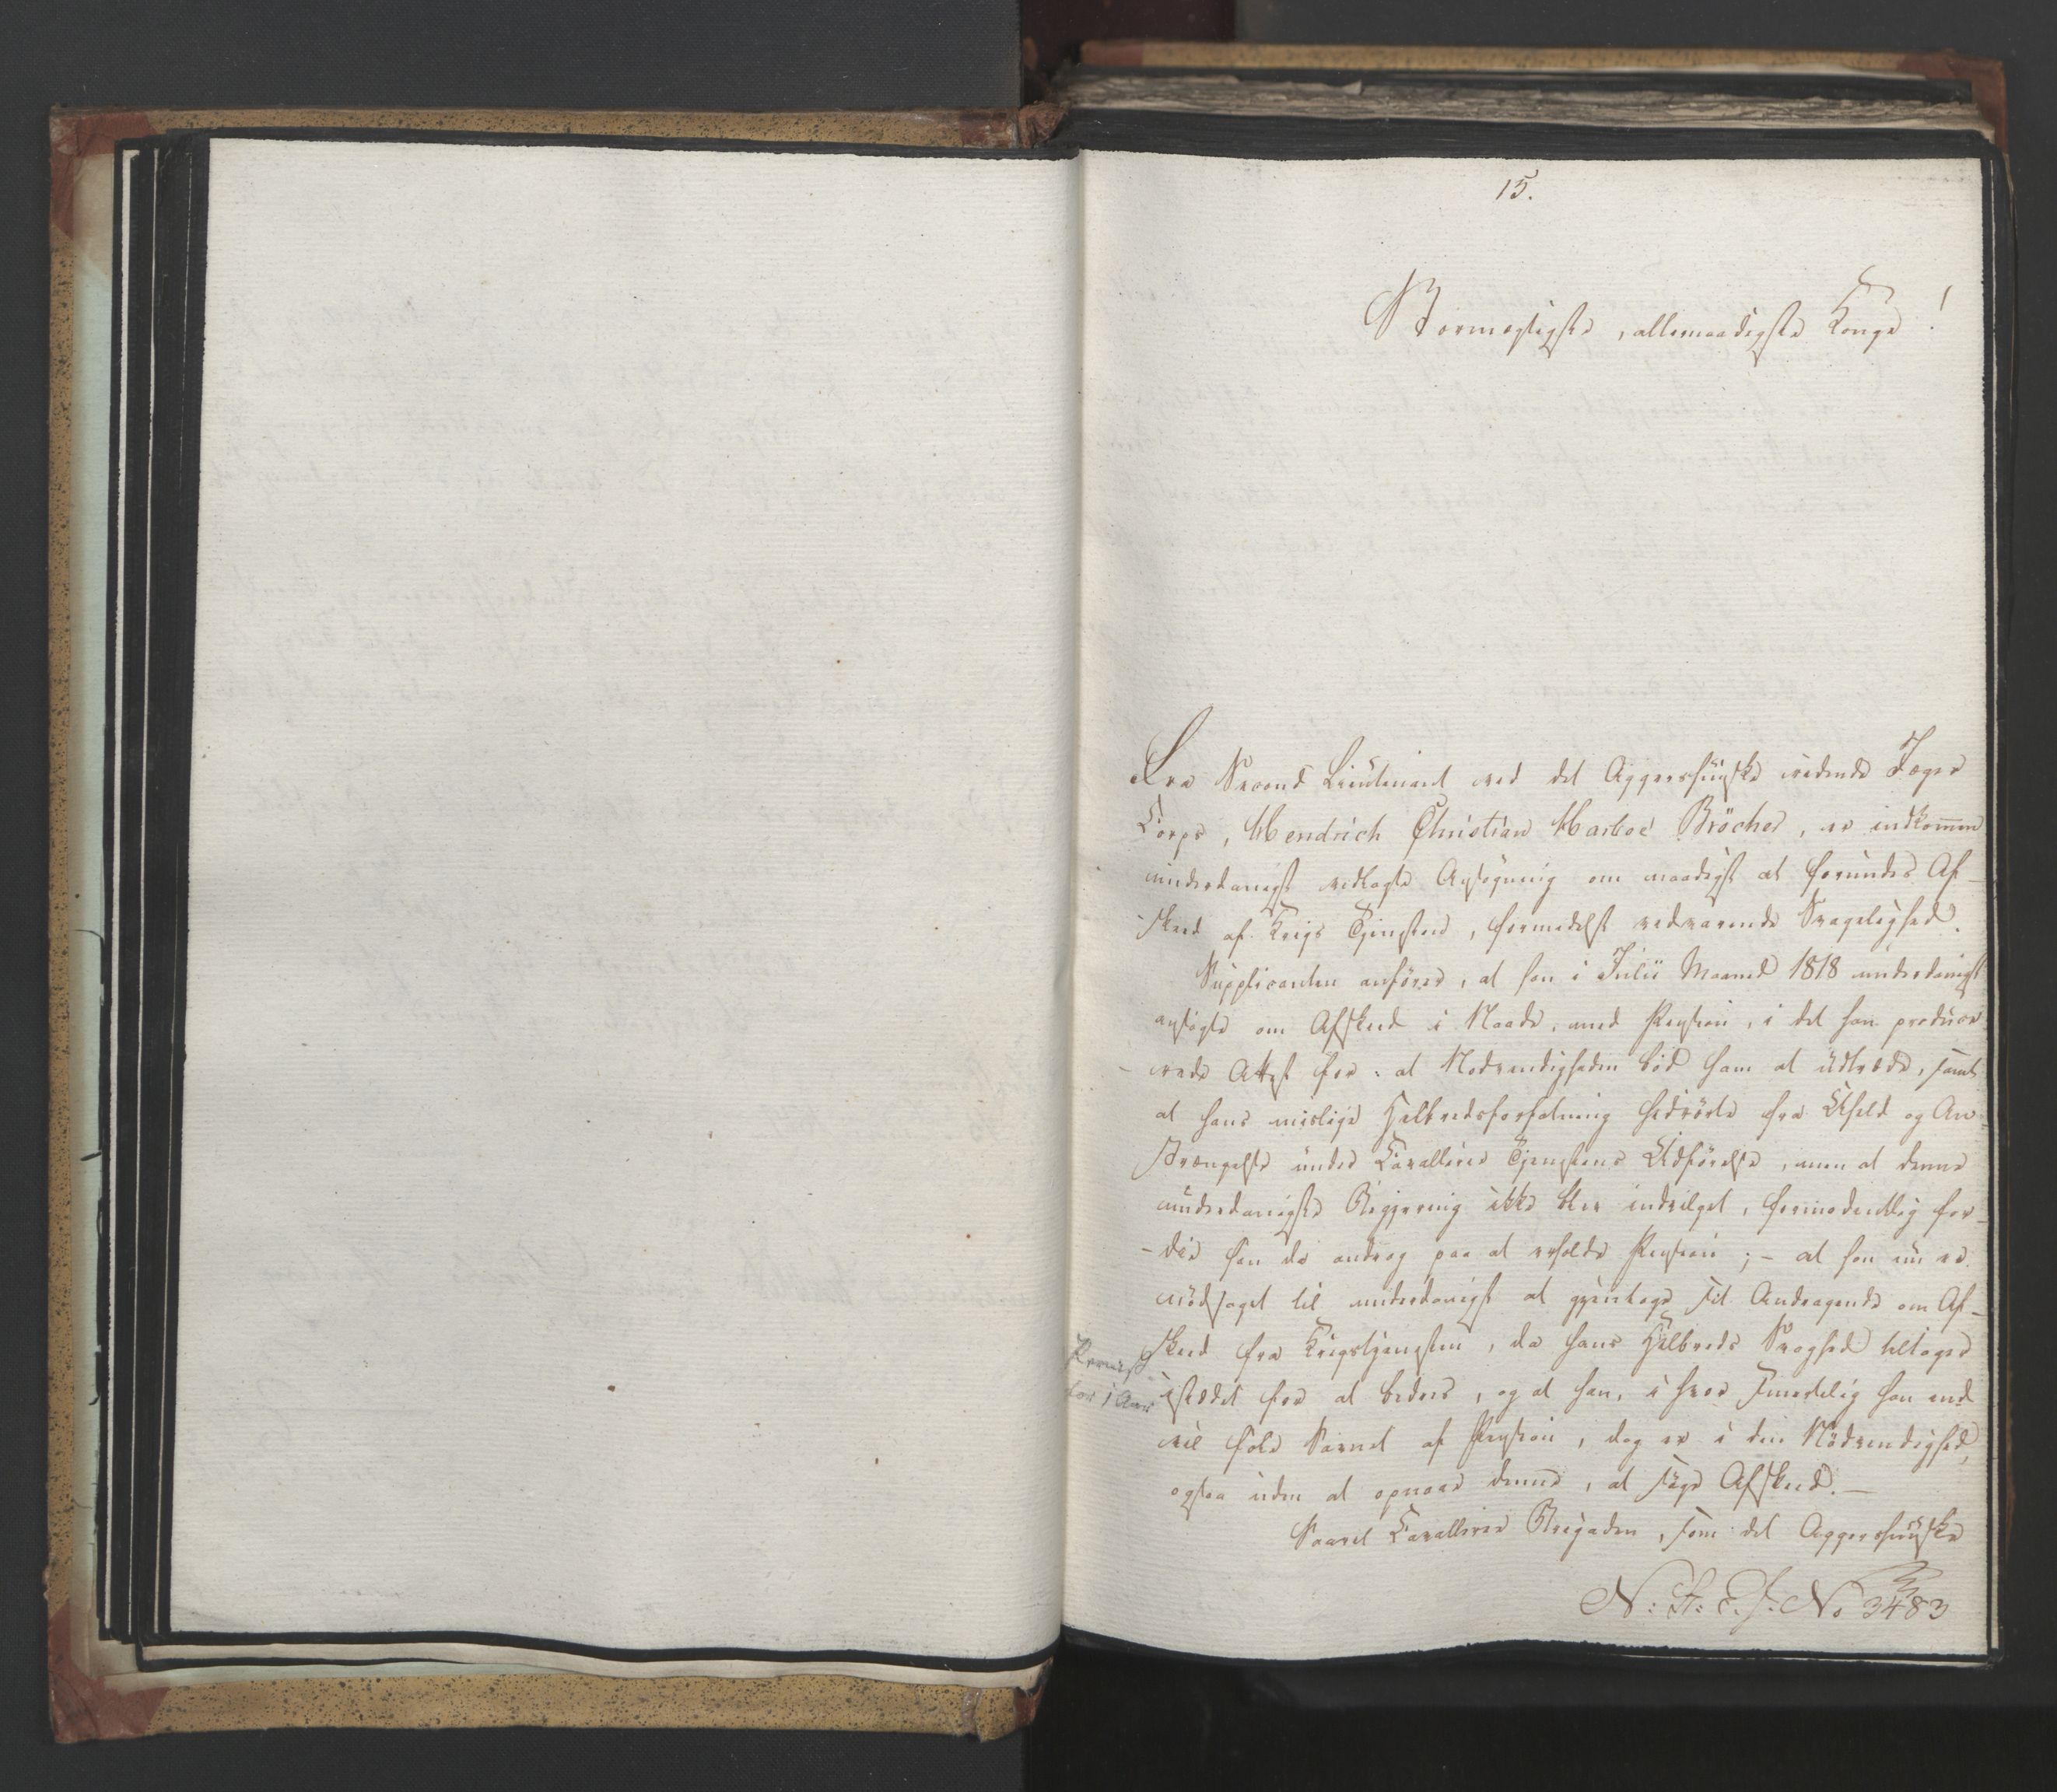 15.
Stormægtigste, allernaadigste Konge!
Fra Second Lieutenant ved det Aggershuuske ridende Jæger
Corps, Hendrich Christian Harboe Bröcher, er indkommen
underdanigst vedlagte Ansögning om naadigst at forundes Af-
skeed af Krigs Tjenesten, formedelst vedvarende Svagelighed.
Supplicanten anförer, at han i Julii Maaned 1818 underdanigst
ansögte om Afskeed i Naade, med Pension, i det han produce-
-rede Attest for: at Nödvendigheden böd ham at udtræde, samt
at hans mislige Helbredsforfatning hidrörte fra Uheld og An-
strængelse under Cavallerie Tjenestens Udförelse, men at denne
underdanigste Begjering ikke blev indvilget, formodentlig for-
-die han da androg paa at erholde Pension; - at han nu er
nödsaget til underdanigst at gjentage sit Andragende om Af-
skeed fra Krigstjenesten, da hans Helbreds Svaghed tiltager
istedet for at bedres, og at han, i hvor smertelig han end
vilföle Savnet af Pension, dog er i den Nödvendighed,
ogsaa uden at opnaae denne, at söge Afskeed.-
for 1 Aar
Saavel Cavallerie Brigaden, som det Aggershuuske
N: A: C. J: No 3483